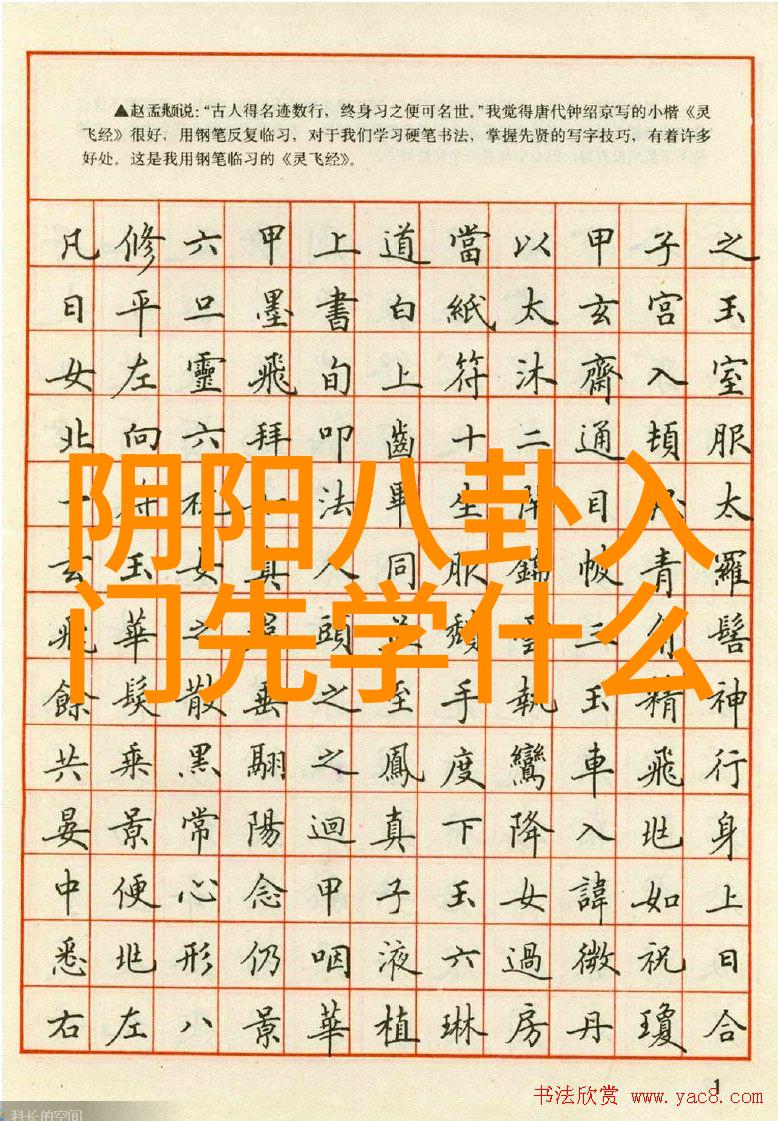 ▲赵孟頫说:“古人得名迹数行,终身习之便可名世。”我觉得唐代钟绍京写的小楷《灵
飞经》很好,用钢笔反复临习,对于我们学习硬笔书法,掌握先贤的写字技巧,有着许多
好处。这是我用钢笔临习的《灵飞经》。
凡修六甲上道當以甲子之
日平旦墨書白紙太玄宮玉
女左靈飛旬上符沐齋入室
北向六拜叩齒十二通頓服
一法畢生目太
阴阳八卦入
玄玉女真人同服錦帔青羅
门先学什么
飛華之頭髻
餘髮散垂之至手執玉精神
共乘黑翮之鳳度鸞車飛行
晏景常陽迴真下降入兆身
中便心念甲子玉女諱如上
悉兆形仍咽液六過微祝日
右左八景華植琳房丹瓊合
1
书法欣赏 www.yac8.com
科长的空间